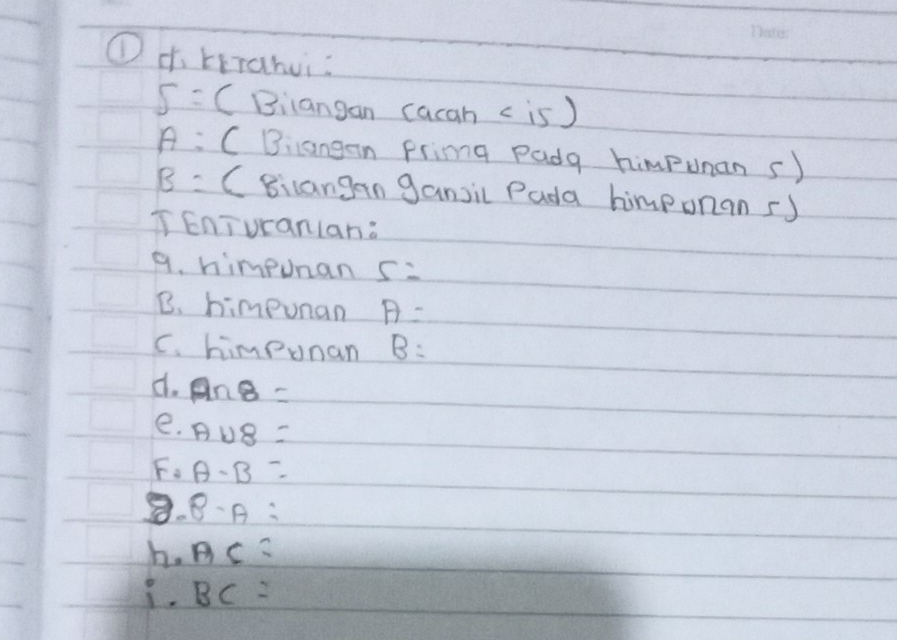 Date:
① di kETahui:
S = ( Bilangan cacah < 15 )
A = ( Bilangan prima pada himpunan S )
B = ( Bilangan ganjil pada himpunan S )
TENTUKANlah:
a. himpunan S =
B. himpunan A =
C. himpunan B =
d. A∩B =
e. A∪B =
F. A-B =
g. B-A =
h. AC =
i. BC =